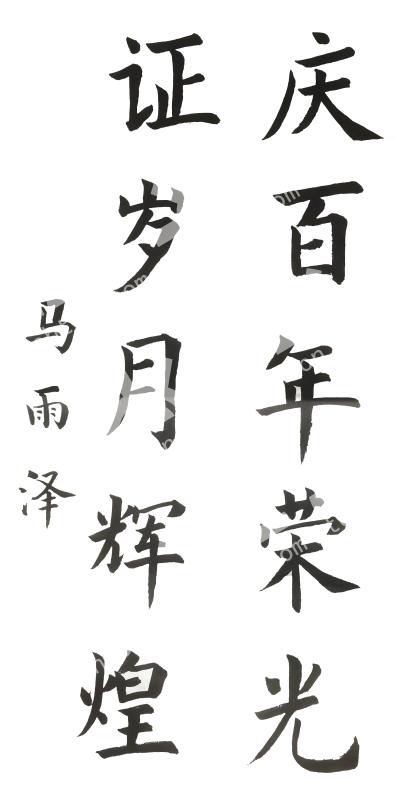 庆百年荣光
证岁月辉煌
马雨泽